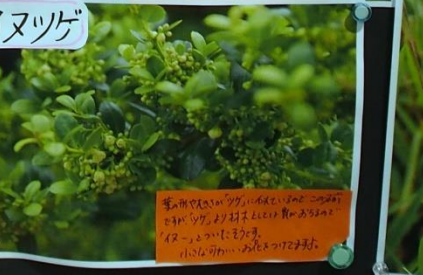 イヌツゲ
葉の形や大きさが「ツゲ」に似ているのでこの名前
ですが「ツゲ」より材木としては質がおちるので
「イヌー」とついたそうです。
小さな可わいいお花をつけてますよ。